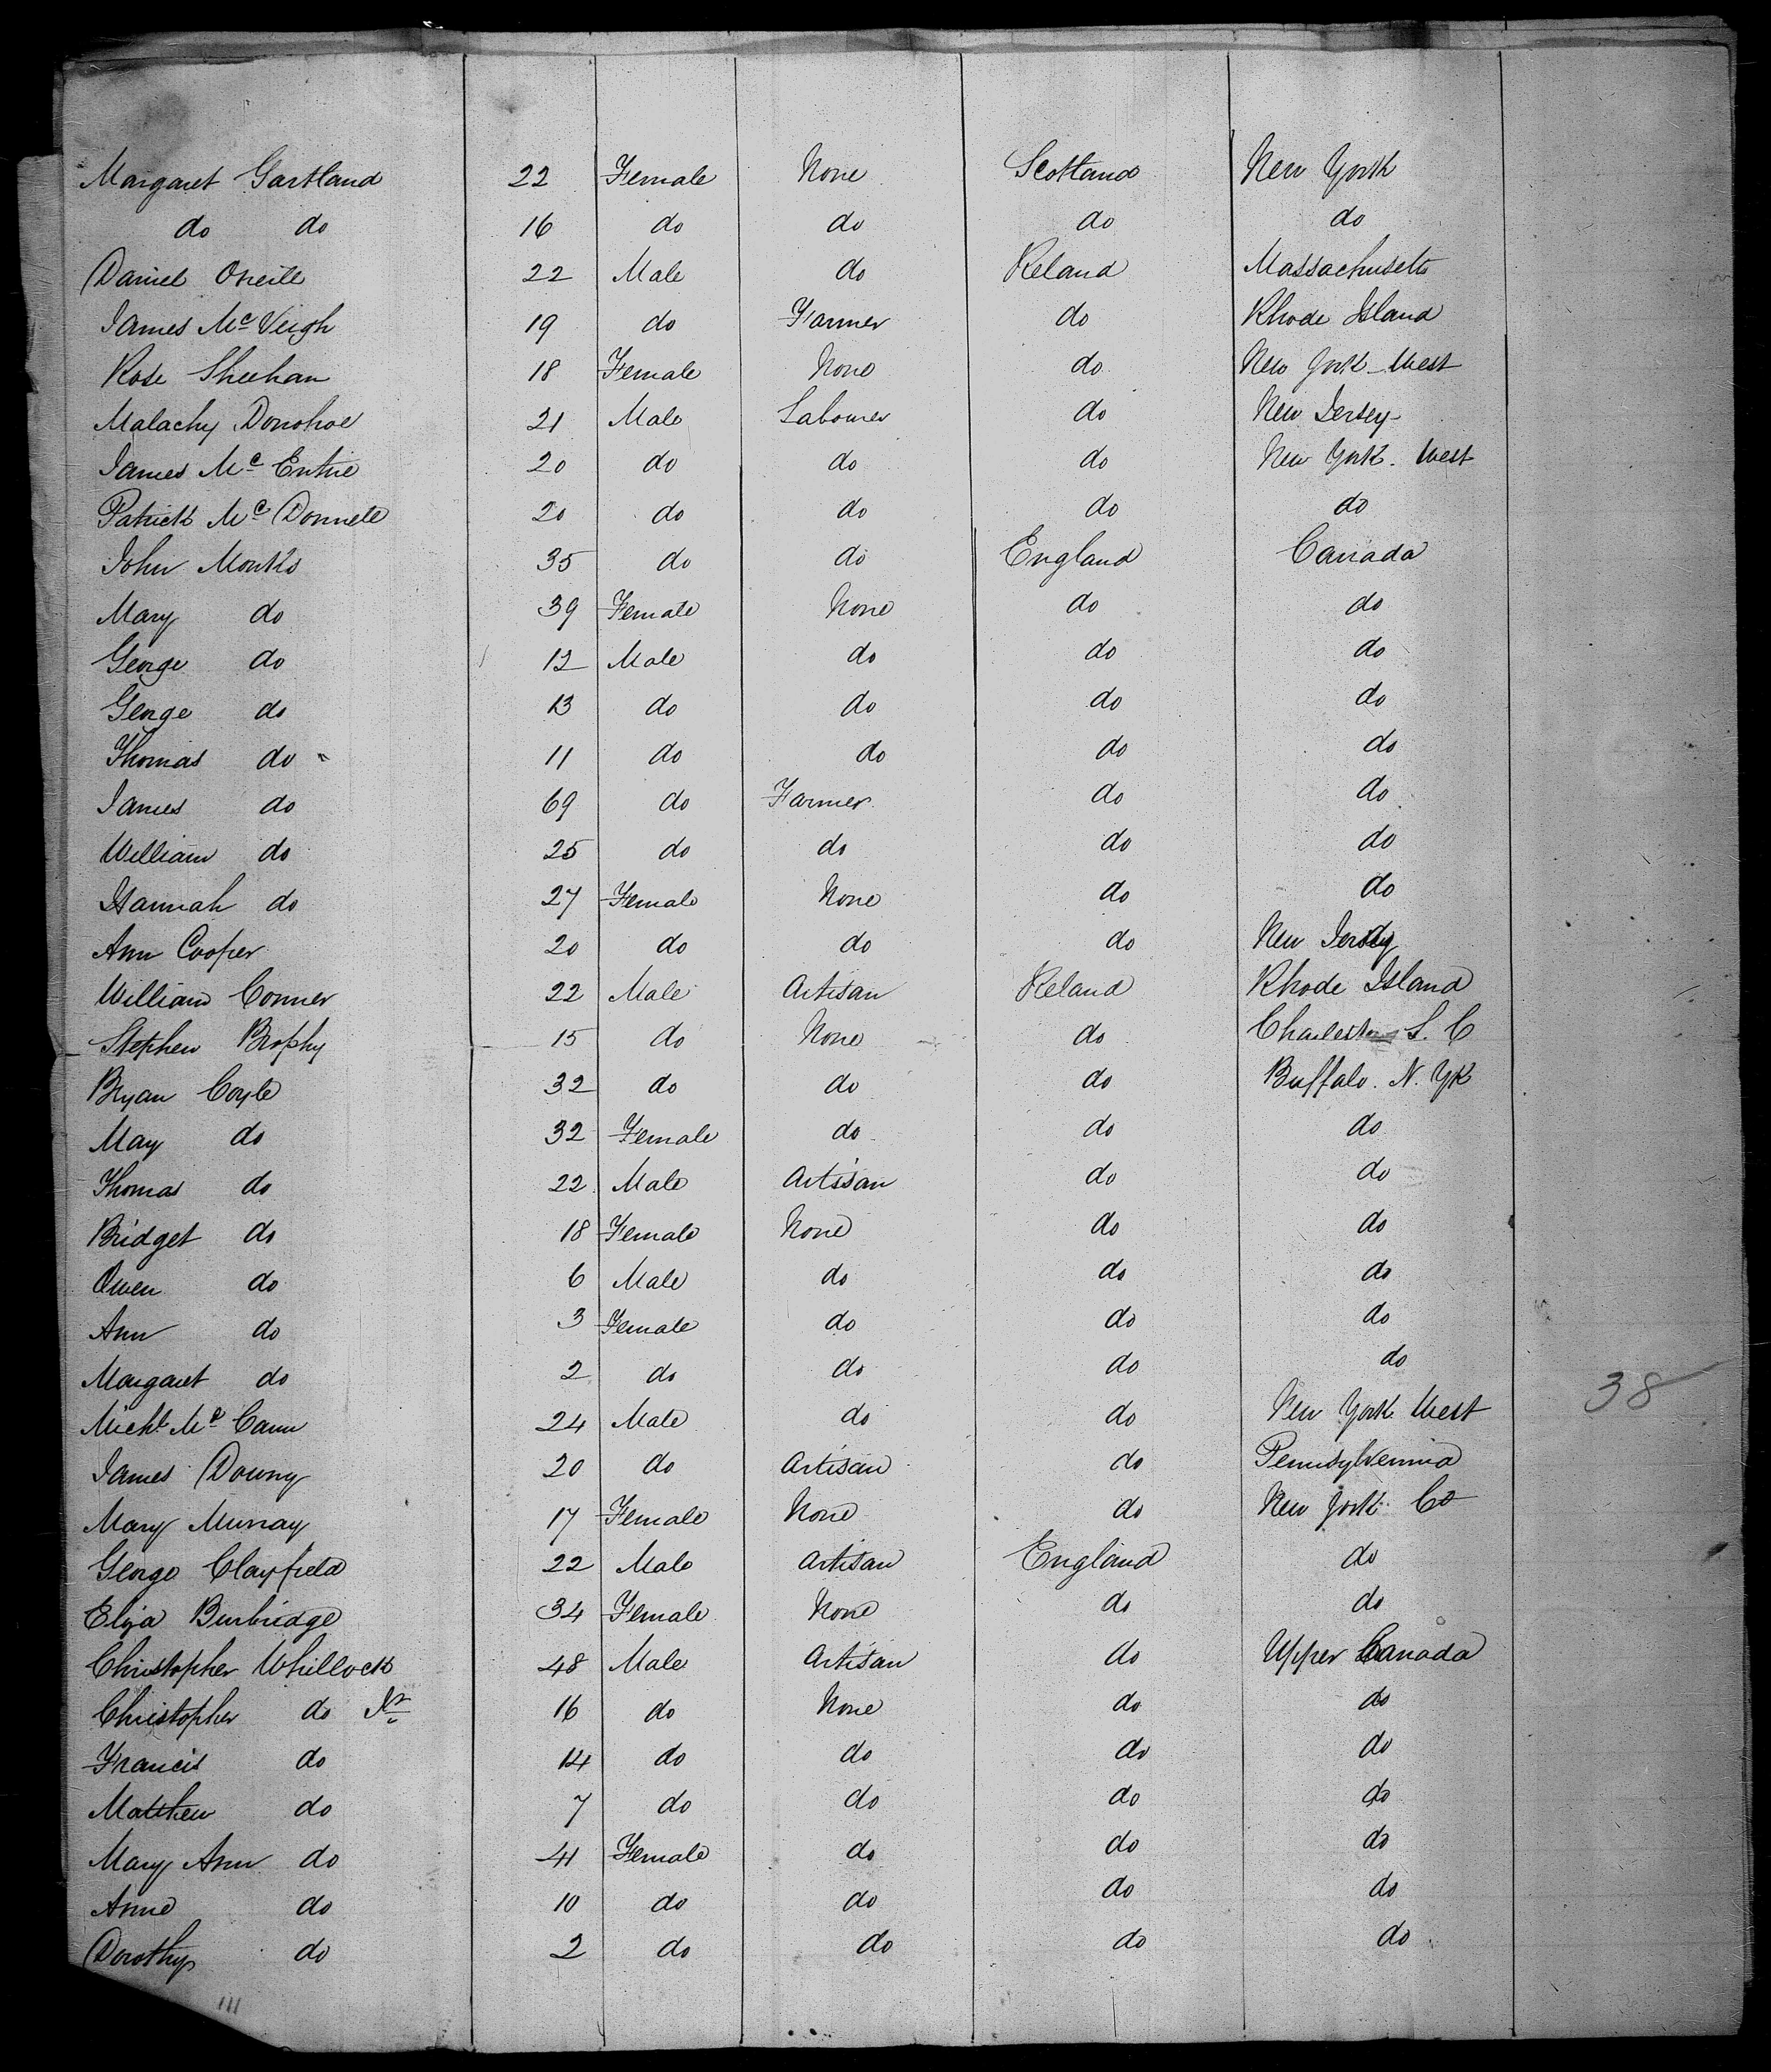 Margaret Gartland 22 Female None Scotland New York
do do 16 do do do do
Daniel Oneill 22 Male do Ireland Massachusetts
James Mc Veigh 19 do Farmer do Rhode Island
Rose Sheehan 18 Female None do New York West
Malachy Donohoe 21 Male Labourer do New Jersey
James Mc Entire 20 do do do New York. West
Patrick Mc Donnell 20 do do do do
John Monks 35 do do England Canada
Mary do 39 Female None do do
George do 12 Male do do do
George do 13 do do do do
Thomas do 11 do do do do
James do 69 do Farmer do do
William do 25 do do do do
Hannah do 27 Female None do do
Ann Cooper 20 do do do New Jersey
William Conner 22 Male Artisan Ireland Rhode Island
Stephen Brophy 15 do None do Charleston S. C
Bryan Coyle 32 do do do Buffalo. N. Yk
May do 32 Female do do do
Thomas do 22 Male Artisan do do
Bridget do 18 Female None do do
Owen do 6 Male do do do
Ann do 3 Female do do do
Margaret do 2 do do do do
Michl Mc Cann 24 Male do do New York West 38
James Downy 20 do Artisan do Pennsylvennia
Mary Murray 17 Female None do New York Co
George Clayfield 22 Male Artisan England do
Eliza Burbridge 34 Female None do do
Christopher Whillock 48 Male Artisan do Upper Canada
Christopher do Jr 16 do None do do
Francis do 14 do do do do
Matthew do 7 do do do do
Mary Ann do 41 Female do do do
Anne do 10 do do do do
Dorothy do 2 do do do do
111